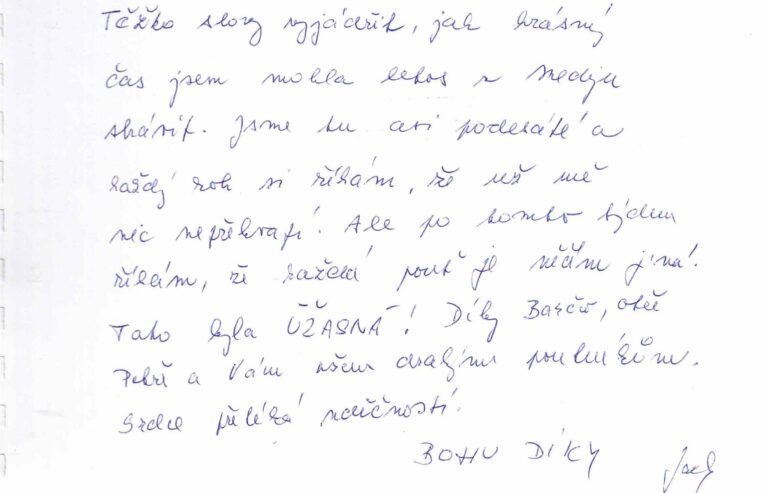 Těžko slovy vyjádřit, jak krásný
čas jsem mohla letos v Medju
strávit. Jsme tu asi podesáté a
každý rok si říkám, že už mě
nic nepřekvapí! Ale po tomto týdnu
říkám, že každá pouť je něčím jiná!
Tato byla ÚŽASNÁ! Díky Barčo, otče
Petře a Vám všem drahým poutníkům.
Srdce přetéká vděčností!
BOHU DÍKY